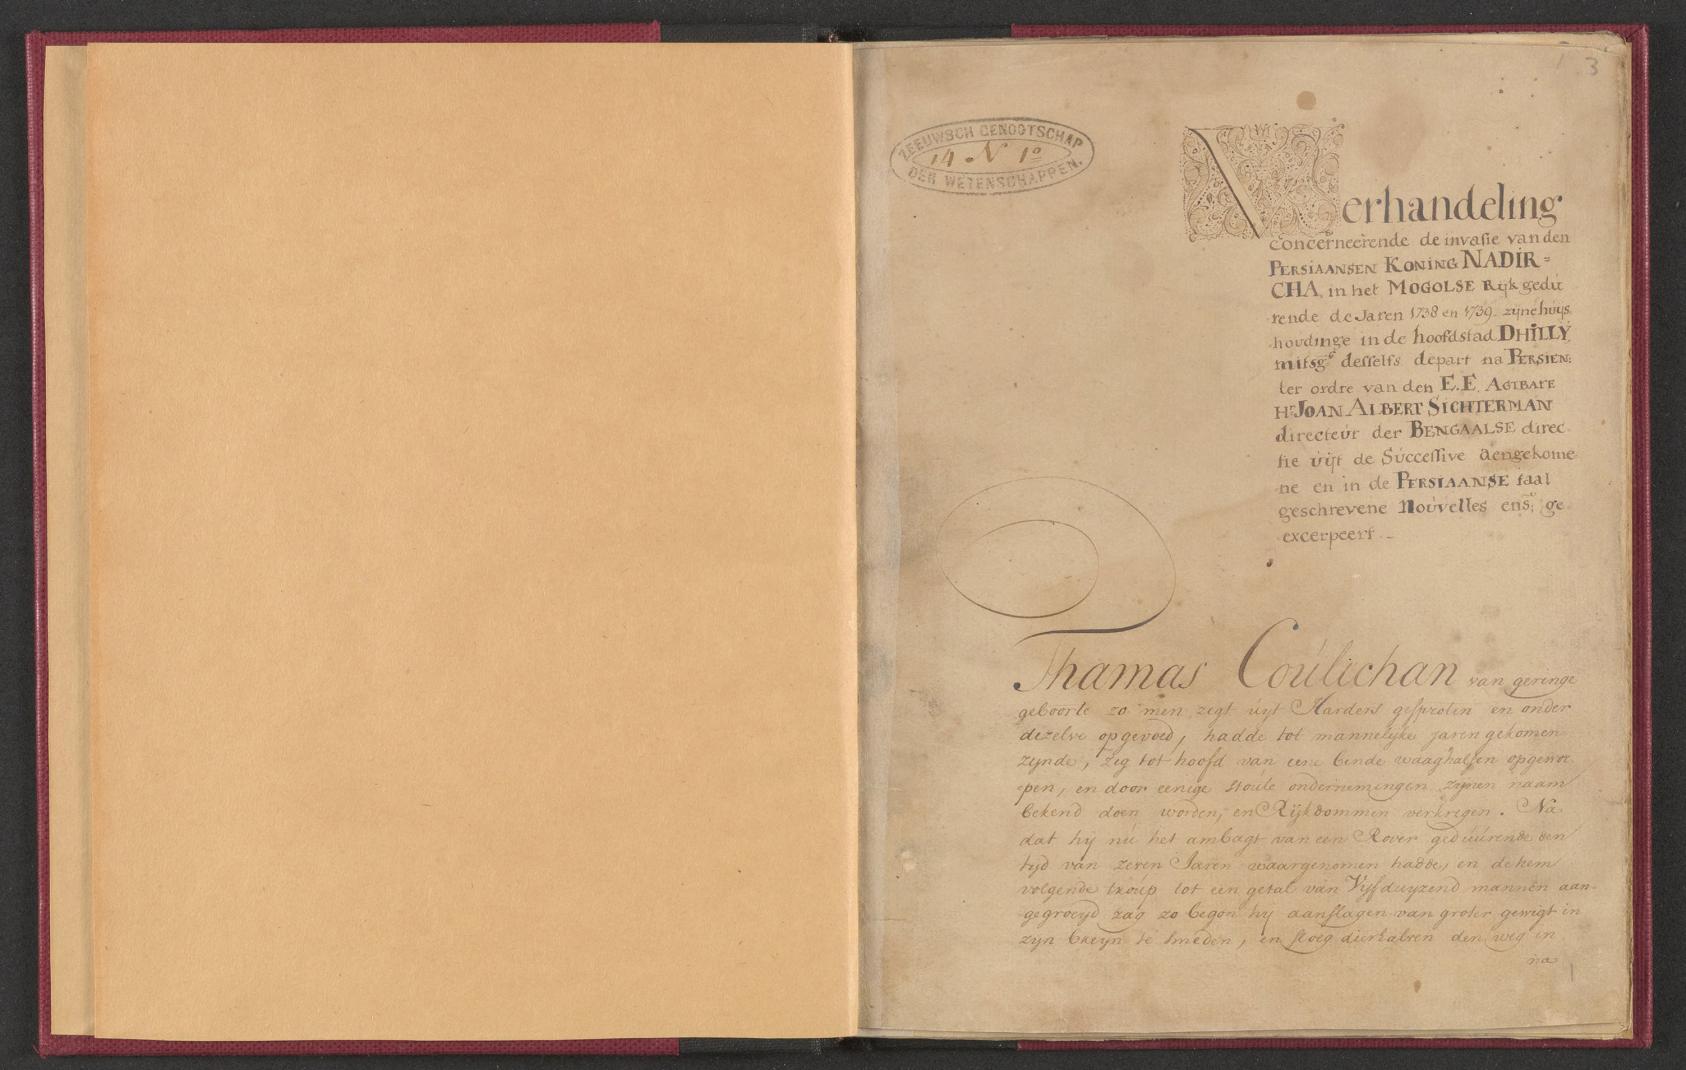 3
ZEEUWSCH GENOOTSCHAP
14 N 1º
DER WETENSCHAPPEN.
Verhandeling
concerneerende de invasie van den
PERSIAANSEN KONING NADIR=
CHA, in het MOGOLSE Rijk gedú
rende de Jaren 1738 en 1739. zijne húijs
houdinge in de hoofdstad DHILLY
mitsgs desselfs depart na PERSIEN:
ter ordre van den E.E. AGTBARE
Hr. JOAN ALBERT SICHTERMAN
directeúr der BENGAALSE direc
tie úijt de Súccessive aengekome
ne en in de PERSIAANSE taal
geschrevene Noúvelles ens: ge
excerpeert
Thamas Coúlichan van geringe
geboorte zo men zegt uyt Harders gesproten en onder
dezelve opgevoed, hadde tot mannelyke jaren gekomen
zynde, zig tot hoofd van eene bende waaghalsen opgewor
pen, en door eenige stoúte ondernemingen zijnen naam
bekend doen worden, en Rijkdommen verkregen. Na
dat hij nú het ambagt van een Rover gedúúrende den
tyd van zeven Jaren waargenomen hadde, en de hem
volgende troúp tot een getal van Vijfduyzend mannen aan-
gegroeyd zag zo begon hij aanslagen van groter gewigt in
zyn breyn te smeden, en sloeg dierhalven den weg in
na
1